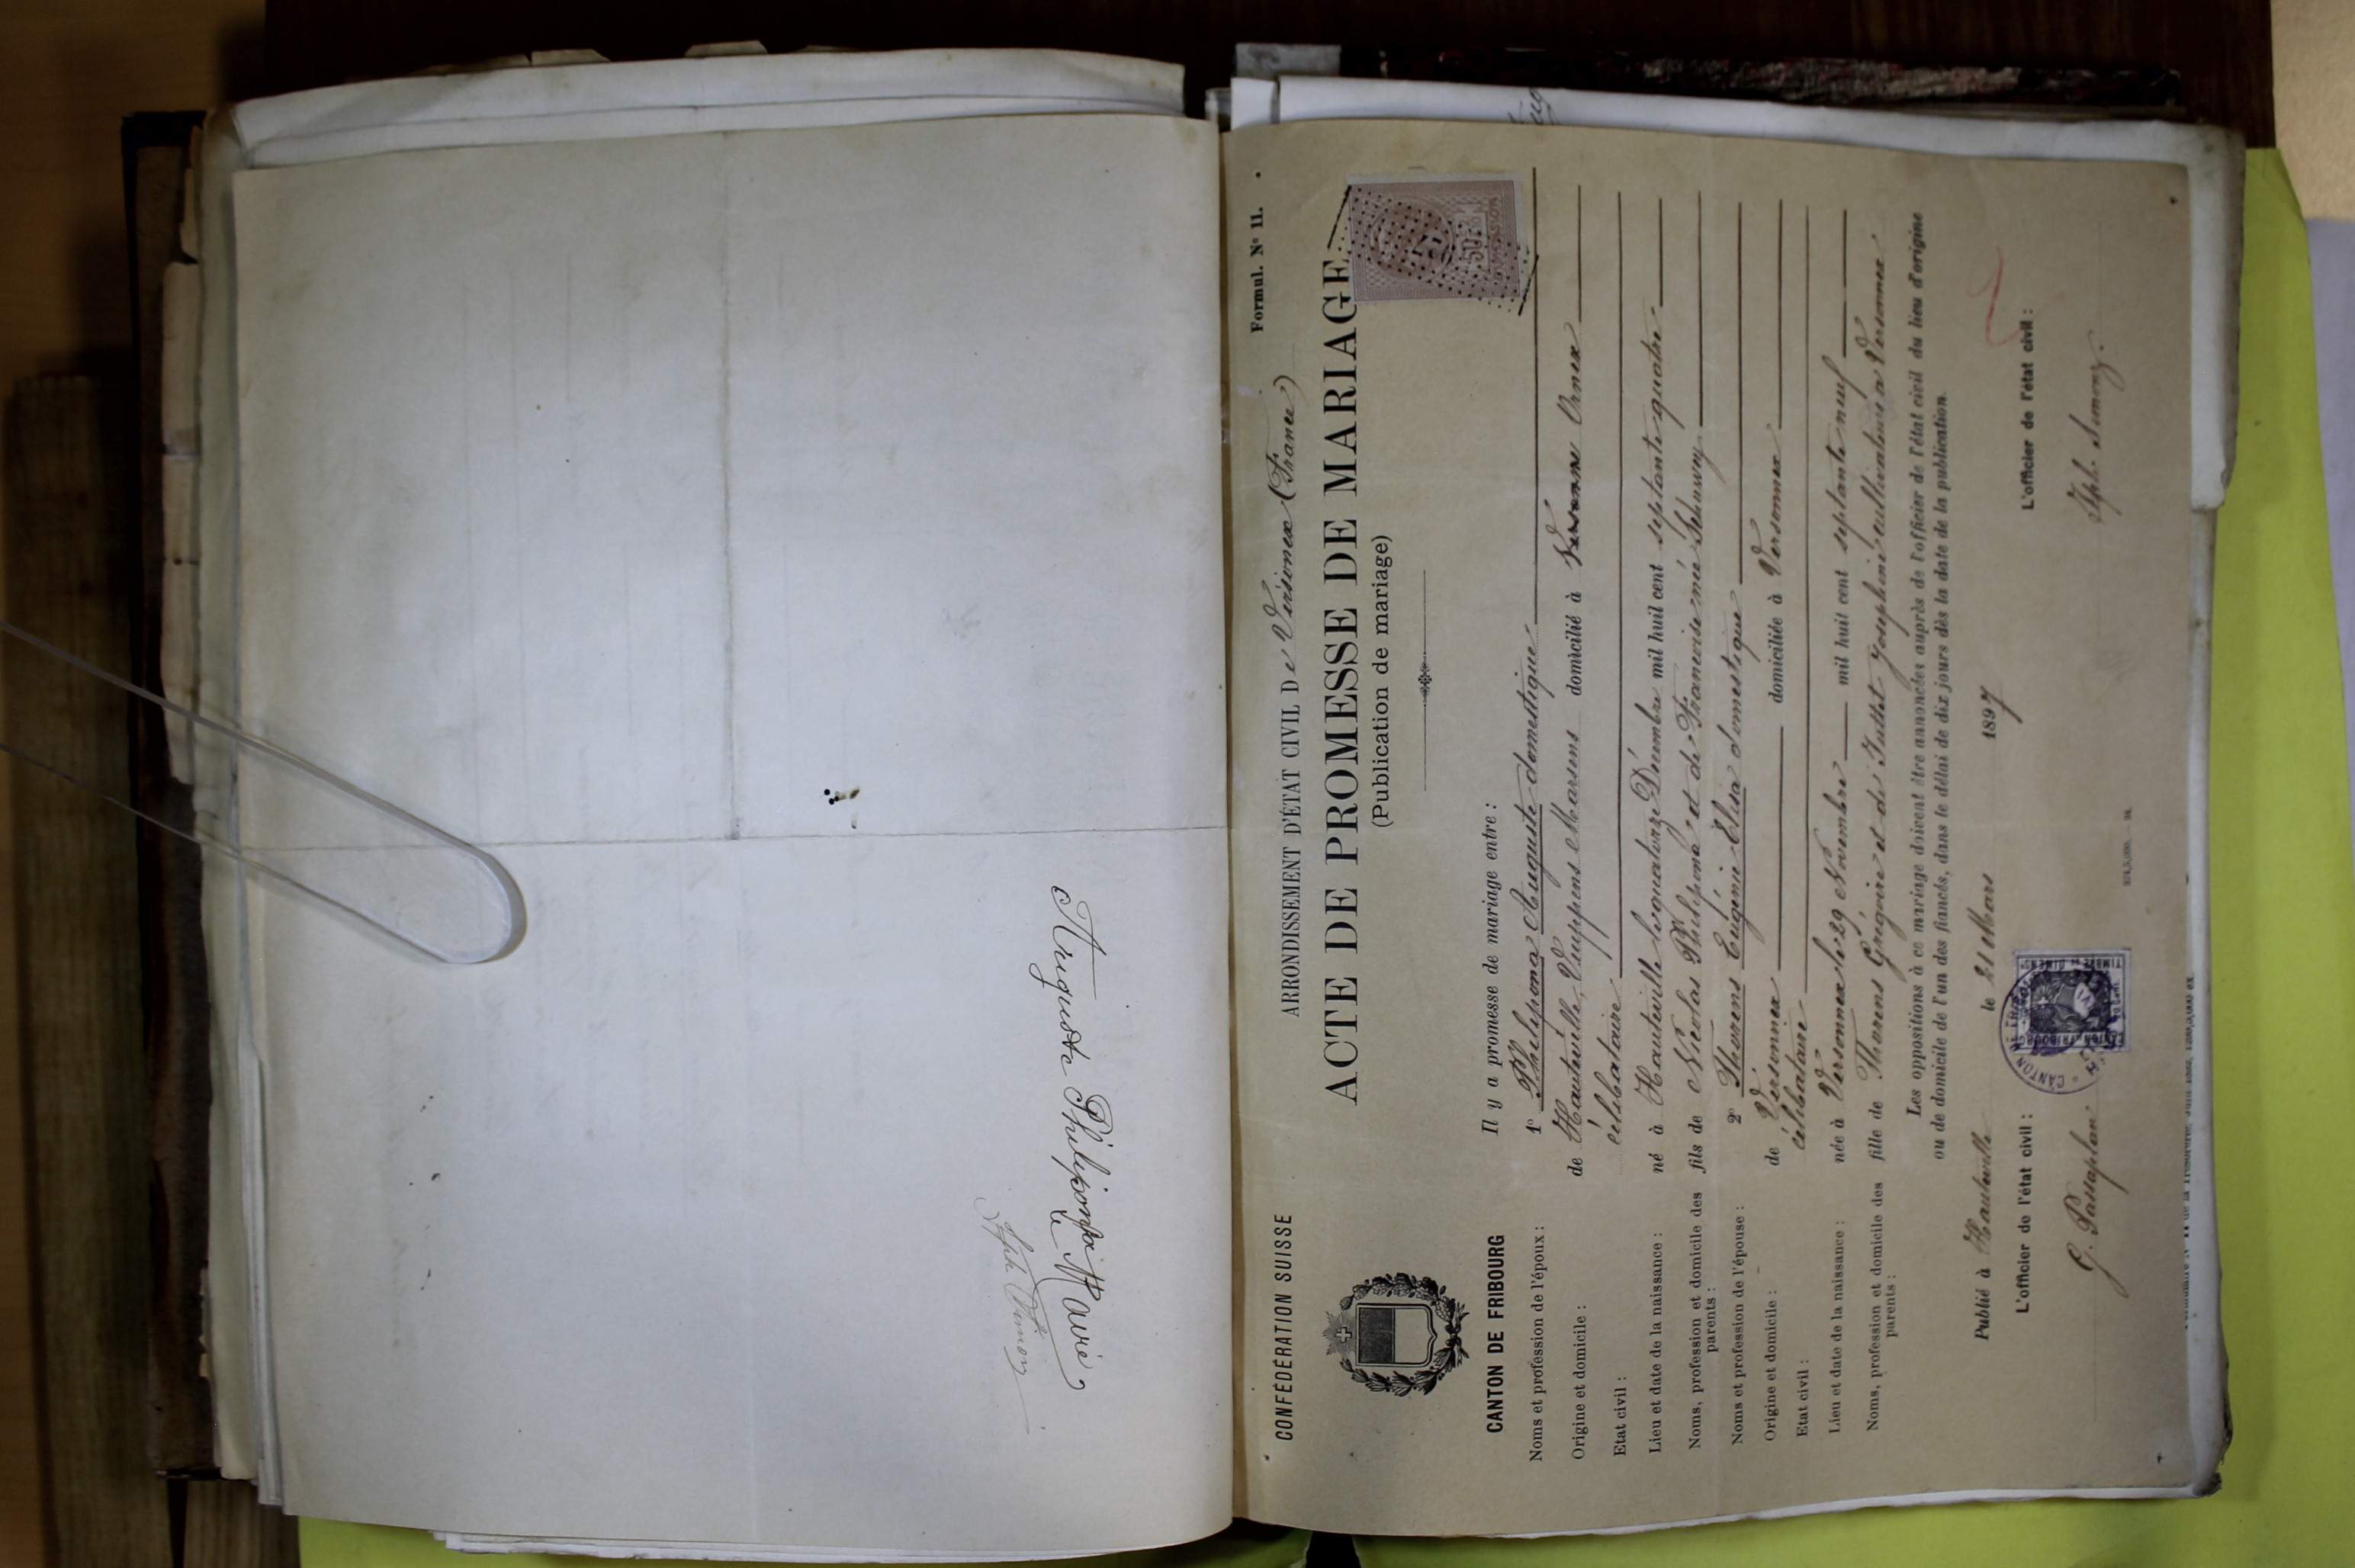 Auguste Philipona
le Marié
CONFÉDÉRATION SUISSE
Formul. Nº 11.
ARRONDISSEMENT D'ÉTAT CIVIL De Versonnex (France)
ACTE DE PROMESSE DE MARIAGE
(Publication de mariage)
CANTON DE FRIBOURG
Il y a promesse de mariage entre :
Noms et profession de l'époux : 1º Philipona Auguste domestique
Origine et domicile : de Hauteville, Vuippens & Marsens domicilié à Versonne Ornex
Etat civil : célibataire
Lieu et date de la naissance : né à Hauteville le quatorze Décembre mil huit cent septante quatre
Noms, profession et domicile des parents : fils de Nicolas Philipona et de Françoise née Schuwey
Noms et profession de l'épouse : 2º Thorens Eugénie Elisa domestique
Origine et domicile : de Versonnex domiciliée à Versonnex
Etat civil : célibataire
Lieu et date de la naissance : née à Versonnex le 29 Novembre mil huit cent septante neuf
Noms, profession et domicile des parents : fille de Thorens Grégoire et de Juillet Josephine cultivateurs à Versonnex
Les oppositions à ce mariage doivent être annoncées auprès de l'officier de l'état civil du lieu d'origine
ou de domicile de l'un des fiancés, dans le délai de dix jours dès la date de la publication.
Publié à Hauteville le 21 Mars 1897
L'officier de l'état civil :
L'officier de l'état civil :
G. Passaplan
CANTON DE FRIBOURG
TIMBRE DE DIMENSION